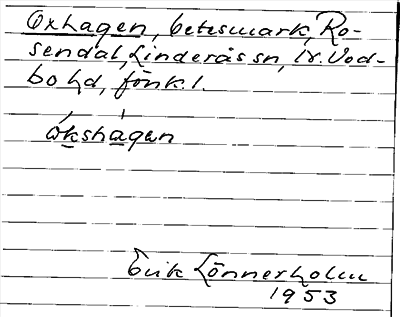 Oxhagen, betesmark, Ro-
sendal, Linderås sn, N. Ved-
bo hd, Jönk. l.
ókshàgen
Erik Lönnerholm
1953